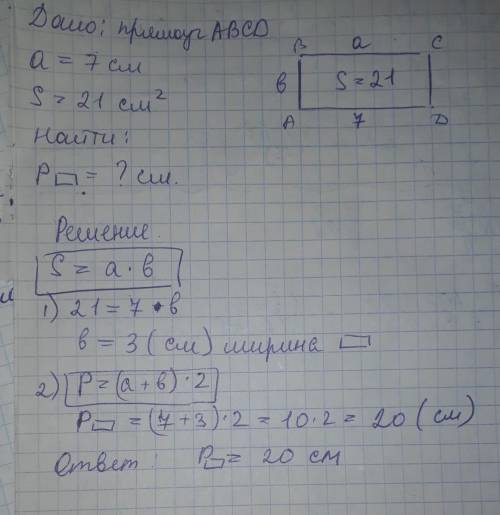 Дано: прямоуг ABCD
a = 7 см
S = 21 см²
Найти:
P▭ = ? см.
B a C
в S = 21
A 7 D
Решение
S = a · в
1) 21 = 7 · в
в = 3 (см) ширина ▭
2) P = (a + в) · 2
P▭ = (7 + 3) · 2 = 10 · 2 = 20 (см)
Ответ: P▭ = 20 см